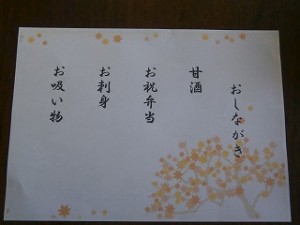 おしながき
甘酒
お祝弁当
お刺身
お吸い物